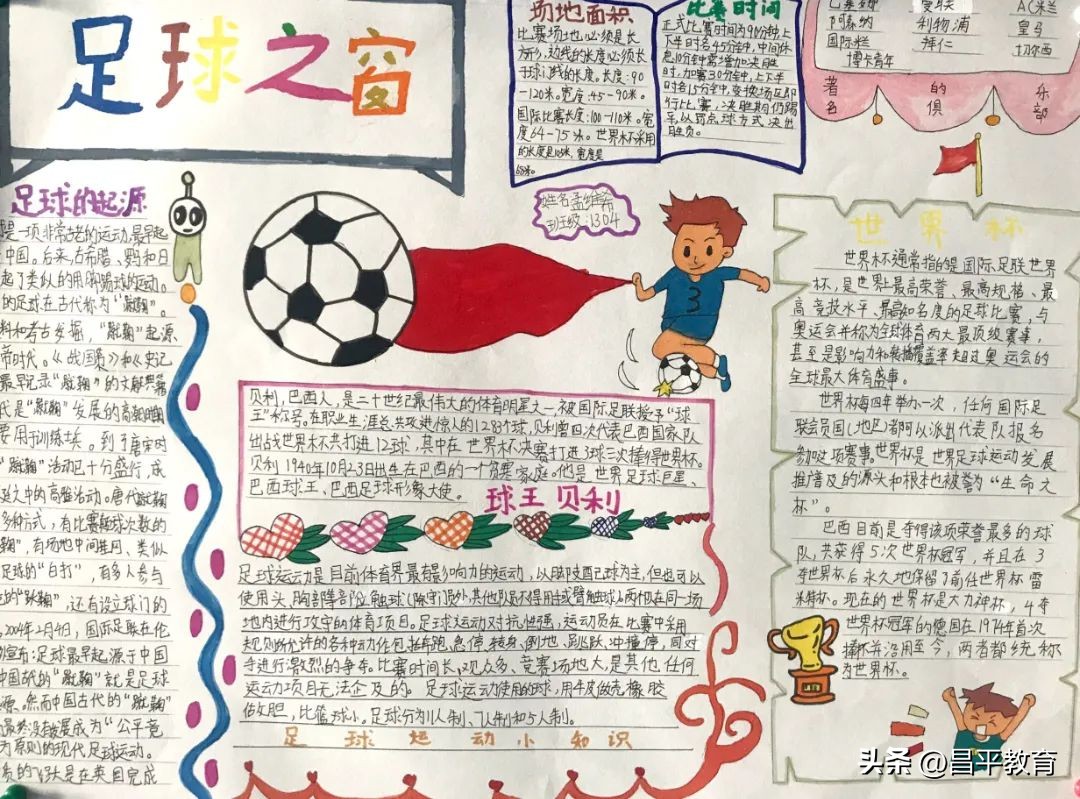 足球之窗
场地面积
比赛场地必须是长
方形，边线的长度必须长
于球门线的长度。长度：90
－120米。宽度：45－90米。
国际比赛长度：100－110米。宽
度64－75米。世界杯采用
的长度是105米，宽度是
68米。
比赛时间
正式比赛时间为90分钟，上
下半时各45分钟，中间休
息10分钟，需增加决胜
时，加赛30分钟，上下半
时各15分钟，变换场区即
行比赛，决胜期仍踢
平，以罚点球方式决出
胜负。
曼联 AC米兰
阿森纳 利物浦 皇马
国际米兰 拜仁 切尔西
博卡青年
著名的俱乐部
足球的起源
是一项非常古老的运动，最早起
中国。后来，古希腊、罗马和日
起了类似的用脚踢球的运动。
的足球在古代称为“蹴鞠”。
料和考古发掘，“蹴鞠”起源
帝时代。《战国策》和《史记
最早记录“蹴鞠”的文献典籍
代是“蹴鞠”发展的高潮时期
要用于训练士兵。到了唐宋时
“蹴鞠”活动已十分盛行，成
廷之中的高雅活动。唐代蹴鞠
多种方式，有比赛颠球次数的
鞠”，有场地中间挂网、类似
足球的“白打”，有多人参与
的“跃鞠”，还有设立球门的
。2004年2月4日，国际足联在伦
宣布：足球最早起源于中国
中国古代的“蹴鞠”就是足球
源。然而中国古代的“蹴鞠”
最终没有发展成为“公平竞
为原则的现代足球运动。
质的飞跃是在英国完成
姓名孟维希
班级：1304
贝利，巴西人，是二十世纪最伟大的体育明星之一，被国际足联授予“球
王”称号。在职业生涯总共攻进惊人的1281球，贝利曾四次代表巴西国家队
出战世界杯共打进12球，其中在世界杯决赛打进3球三次捧得世界杯。
贝利1940年10月23日出生在巴西的一个贫寒家庭。他是世界足球巨星、
巴西球王、巴西足球形象大使。
球王贝利
足球运动是目前体育界最有影响力的运动，以脚支配球为主，但也可以
使用头、胸部等部位触球（除守门员外，其他队员不得用手或臂触球）。两队在同一场
地内进行攻守的体育项目。足球运动对抗性强，运动员在比赛中采用
规则所允许的各种动作包括奔跑、急停、转身、倒地、跳跃、冲撞停，同对
手进行激烈的争夺。比赛时间长，观众多、竞赛场地大，是其他任何
运动项目无法企及的。足球运动使用的球，用牛皮做壳，橡胶
做胆，比篮球小。足球分为11人制、7人制和5人制。
足球运动小知识
世界杯
世界杯通常指的是国际足联世界
杯，是世界上最高荣誉、最高规格、最
高竞技水平、最高知名度的足球比赛，与
奥运会并称为全球体育两大最顶级赛事，
甚至是影响力和转播覆盖率超过奥运会的
全球最大体育盛事。
世界杯每四年举办一次，任何国际足
联会员国（地区）都可以派出代表队报名
参加这项赛事。世界杯是世界足球运动发展
推普及的源头和根本也被誉为“生命之
杯”。
巴西目前是夺得该项荣誉最多的球
队，共获得5次世界杯冠军，并且在3
夺世界杯后永久地保留了前任世界杯雷
米特杯。现在的世界杯是大力神杯，4夺
世界杯冠军的德国在1974年首次
捧杯并沿用至今，两者都统称
为世界杯。
3
头条 @昌平教育